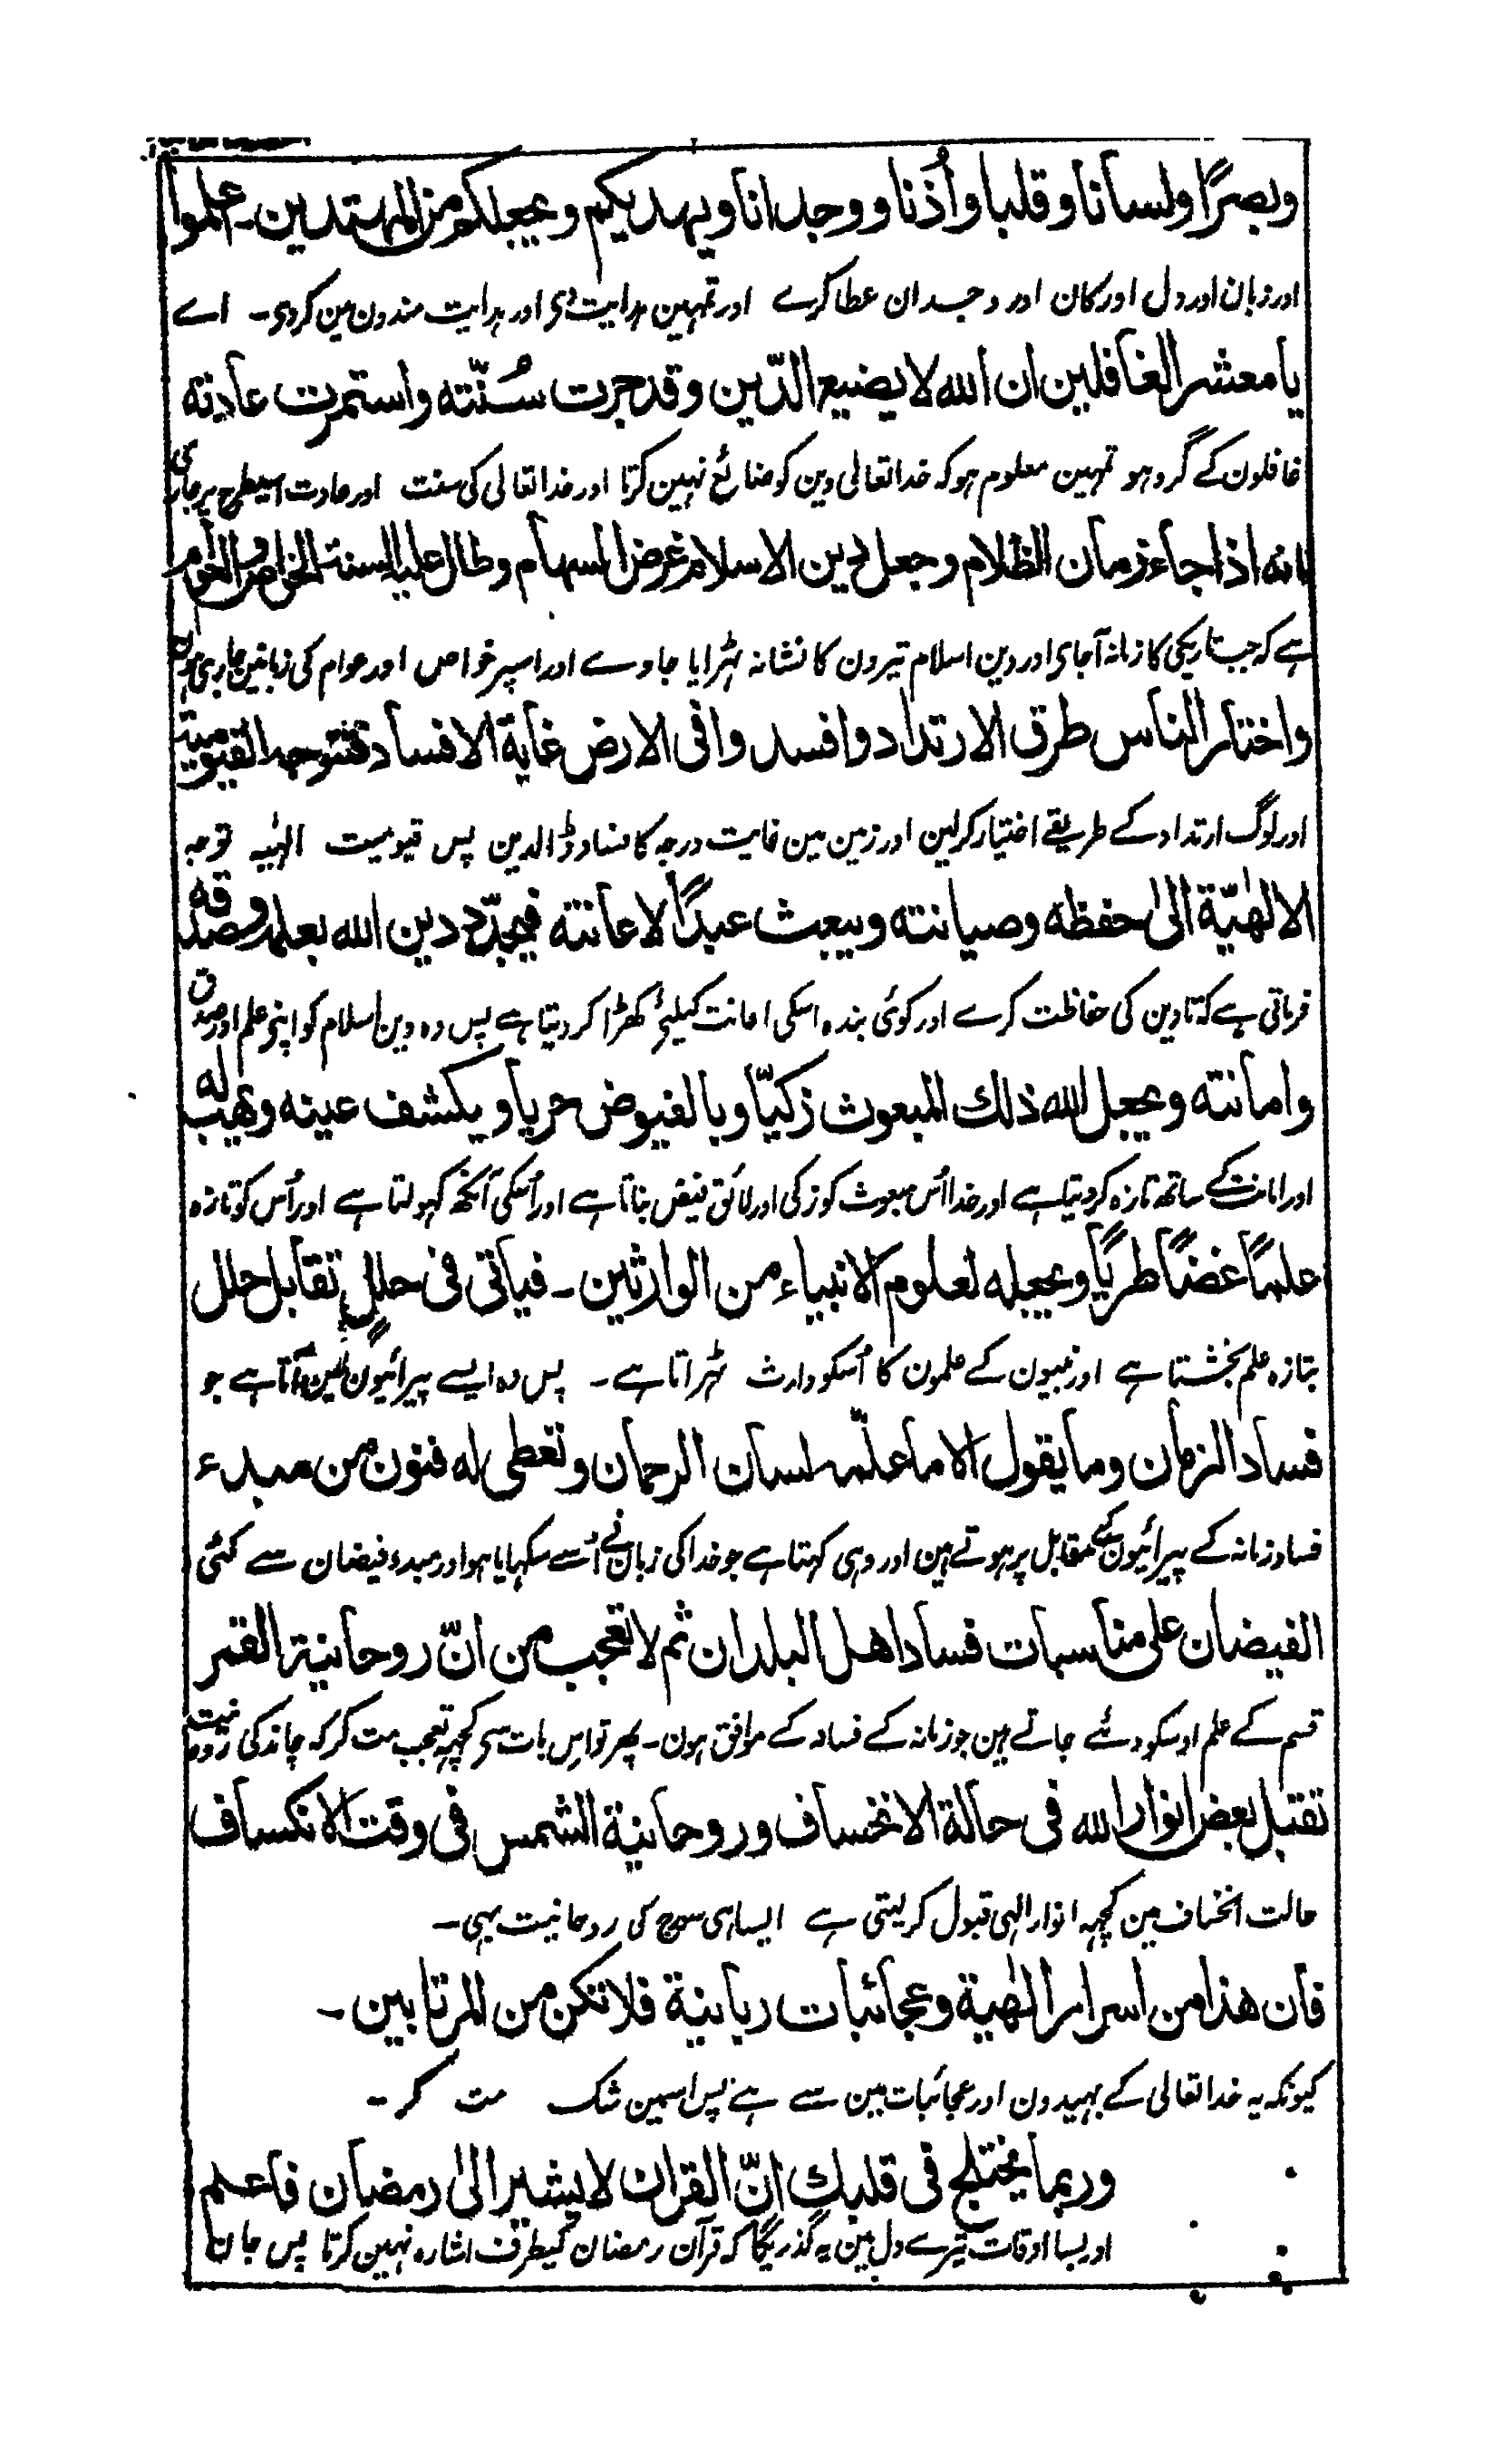 وبصرًا ولسانا وقلبا واُذنا ووجدانا ويهديكم ويجعلكم من المهتدين۔ اعلموا
اور زبان اور دل اور کان اور وجدان عطا کرے اور تمہین ہدایت دے اور ہدایت مندون مین کر دے۔ اے
يا معشر الغافلين ان الله لا يضيع الدّين وقد جرت سُنّته واستمرت عادته
غافلون کے گروہو تمہین معلوم ہو کہ خدا تعالی دین کو ضائع نہین کرتا اور خدا تعالی کی سنت اور عادت اسیطرح پر جاری
بانه اذا جاء زمان الظلام وجعل دين الاسلام غرض السهام وطال عليه السنة الخواص والعوام
ہے کہ جب تاریکی کا زمانہ آجائے اور دین اسلام تیرون کا نشانہ ٹہرایا جاوے اور اسپر خواص اور عوام کی زبانین جاری ہون
واختار الناس طرق الارتداد وافسدوا فى الارض غاية الافساد فتتوجه القيومية
اور لوگ ارتداد کے طریقے اختیار کر لین اور زمین مین غایت درجہ کا فساد ڈالدین پس قیومیت الٰہیہ توجہ
الالٰهيّة الىٰ حفظه وصيانته ويبعث عبدًا لاعانته فيجدّد دين الله بعلمه وصدقه
فرماتی ہے کہ تا دین کی حفاظت کرے اور کوئی بندہ اسکی اعانت کیلئے کھڑا کر دیتا ہے پس وہ دین اسلام کو اپنے علم اور صدق
وامانته ويجعل الله ذلك المبعوث زكيّا وبالفيوض حريا ويكشف عينه ويهب له
اور امانت کے ساتھ تازہ کر دیتا ہے اور خدا اُس مبعوث کو زکی اور لائق فیض بناتا ہے اور اُسکی آنکھ کہولتا ہے اور اُس کو تازہ
علمًا غضًا طريًا ويجعله لعلوم الانبياء من الوارثين۔ فيأتى فى حللٍ تقابل حلل
بتازہ علم بخشتا ہے اور نبیون کے علمون کا اُسکو وارث ٹہراتا ہے۔ پس وہ ایسے پیرائیون مین آتا ہے جو
فساد الزمان وما يقول الا ما علّمه لسان الرحمان وتعطى له فنون من مبدء
فساد زمانہ کے پیرائیون کے مقابل پر ہوتے ہین اور وہی کہتا ہے جو خدا کی زبان نے اُسے سکہایا ہو اور مبدء فیضان سے کئی
الفيضان على مناسبات فساد اهل البلدان ثم لا تعجب من انّ روحانية القمر
قسم کے علم اوسکو دئے جاتے ہین جو زمانہ کے فساد کے موافق ہون۔ پھر تو اس بات سے کچہہ تعجب مت کر کہ چاند کی روحانیت
تقتبل بعض انوار الله فى حالة الانخساف وروحانية الشمس فى وقت الانكساف
حالت انخساف مین کچہہ انوار الٰہی قبول کر لیتی ہے ایسا ہی سورج کی روحانیت بہی۔
فان هذا من اسرار الٰهية وعجائبات ربانية فلا تكن من المرتابين۔
کیونکہ یہ خدا تعالی کے بہیدون اور عجائبات مین سے ہے پس اسمین شک مت کر۔
وربما يختلج فى قلبك انّ القران لا يشير الىٰ رمضان فاعلم
اور بسا اوقات تیرے دل مین یہ گذریگا کہ قرآن رمضان کیطرف اشارہ نہین کرتا پس جان